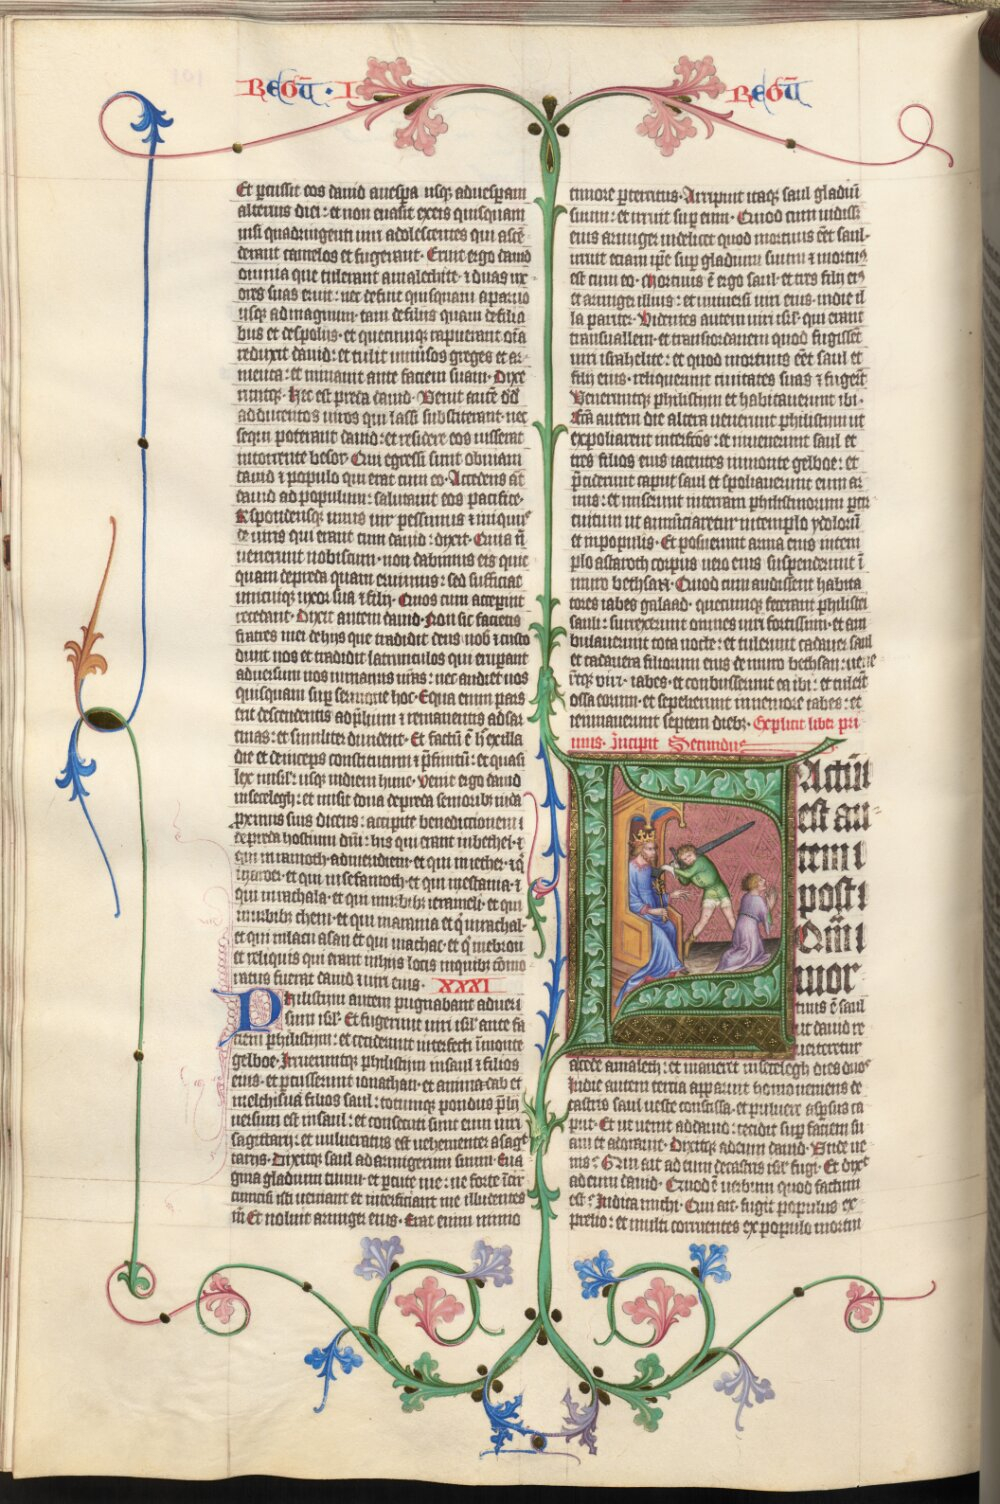 Regū · I
Regū
Et pcussit eos dauid auespa usq; aduesperam
alterius diei : et non euasit exeis quisquam
nisi quadringenti uiri adolescentes qui ascē
derant camelos et fugerant · Eruit ergo dauid
omnia que tulerant amalechite · ⁊ duas ux
ores suas eruit : nec defuit quisquam aparuo
usq; admagnum · tam defilijs quam defilia
bus et despolijs · et quecumq; rapuerant oīa
reduxit dauid : et tulit uniuersos greges et ar
menta : et minauit ante faciem suam · Dixe
runtq; · hec est preda dauid · Venit autē dd
adducentos uiros qui lassi substiterant · nec
sequi poterant dauid : et residere eos iusserat
intorrente besor · Qui egressi sunt obuiam
dauid ⁊ populo qui erat cum eo · Accedens āt
dauid ad populum : salutauit eos pacifice ·
Respondensq; unus uir pessimus ⁊ iniquus
de uiris qui erant cum dauid : dixit · Quia ñ
uenerunt nobiscum · non dabimus eis quic
quam depreda quam eruimus : sed sufficiat
unicuiq; uxor sua ⁊ filij · Quos cum acceperint
recedant · Dixit autem dauid · Non sic facietis
fratres mei dehijs que tradidit deus nob ⁊ custo
diuit nos et tradidit latrunculos qui eruperant
aduersum nos inmanus nr̄as : nec audiet uos
quisquam sup sermone hoc · Equa enim pars
erit descendentis adplium ⁊ remanentis adsar
cinas : et similiter diuident · Et factū ē h exilla
die et deinceps constitutum ⁊ pfinitū : et quasi
lex inisrl : usq; indiem hunc · Venit ergo dauid
insicelegh : et misit dona depreda seniorib iuda
pximis suis dicens : accipite benedictionem ⁊
depreda hostium dni : his qui erant inbethel · ⁊
qui inramoth · admeridiem · et qui iniether · ⁊ q̄
inaroer · et qui insefamoth · et qui inestama · ⁊
qui inrachala · et qui inurbib ierameli · et qui
inurbib cheni · et qui inarama et q̄ inrachal ·
et qui inlacu asan et qui inathac · et q̄ inebron
et reliquis qui erant inhijs locis inquib cōmo
ratus fuerat dauid ⁊ uiri eius · XXXI
Philistijm autem pugnabant aduer
sum isrl · Et fugerunt uiri isrl ante fa
ciem philistijm : et ceciderunt interfecti īmonte
gelboe · Irrueruntq; philistijm insaul ⁊ filios
eius · et pcusserunt ionathan · et aminadab et
melchisua filios saul : totumq; pondus plij
uersum est insaul : et consecuti sunt eum uiri
sagittarij : et uulneratus est uehementer asagit
tarijs · Dixitq; saul adarmigerum suum · Eua
gina gladium tuum · et pcute me : ne forte īcir
cumcisi isti ueniant et interficiant me illudentes
m̄ Et noluit armiger eius · Erat enim nimio
timore pterritus · Arripuit itaq; saul gladiū
suum : et irruit sup eum · Quod cum uidiss
eius armiger uidelicet quod mortuus cēt saul ·
irruit etiam ipe sup gladium suum ⁊ mortuus
est cum eo · Mortuus ē ergo saul · et tres filij ei
et armiger illius : et uniuersi uiri eius · indie il
la pariter · Videntes autem uiri isrl · qui erant
transuallem · et transiordanem quod fugissēt
uiri israhelite : et quod mortuus cēt saul et
filij eius · reliquerunt ciuitates suas ⁊ fugerūt
Veneruntq; philistijm et habitauerunt ibi ·
Fcā autem die altera uenerunt philistijm ut
expoliarent interfcōs : et inuenerunt saul et
tres filios eius iacentes inmonte gelboe : et
pciderunt caput saul et spoliauerunt eum ar
mis : et miserunt interram philistinorum per cir
cuitum ut annūciaretur intemplo ydolorū
et inpopulis · Et posuerunt arma eius intem
plo astaroth corpus uero eius suspenderunt ī
muro bethsan · Quod cum audissent habita
tores iabes galaad · quecumq; fecerant philistei
sauli : surrexerunt omnes uiri fortissimi · et am
bulauerunt tota nocte : et tulerunt cadauer saul
et cadauera filiorum eius de muro bethsan : uene
rūtq; uiri · iabes · et conbusserunt ea ibi : et tulerūt
ossa eorum · et sepelierunt innemore iabes : et
ieiunauerunt septem dieb; · Explicit liber pri
mus · Incipit Secundus
Factū
est au
tem ⁊
post ⁊
Qm̄ ⁊
mor
tuus ē saul
ut dauid re
uerteretur
acede amalech : et maneret insicelegh dies duos
Indie autem tercia apparuit homo ueniens de
castris saul ueste conscissa · et puluere aspsus ca
put · Et ut uenit addauid : cecidit sup faciem su
am et adorauit · Dixitq; adeum dauid · Vnde ue
nis · Qui ait ad eum decastris isrl fugi · Et dixit
adeum dauid · Quod ē uerbum quod factum
est · Indica michi · Qui ait · fugit populus ex
prelio : et multi corruentes ex populo mortui